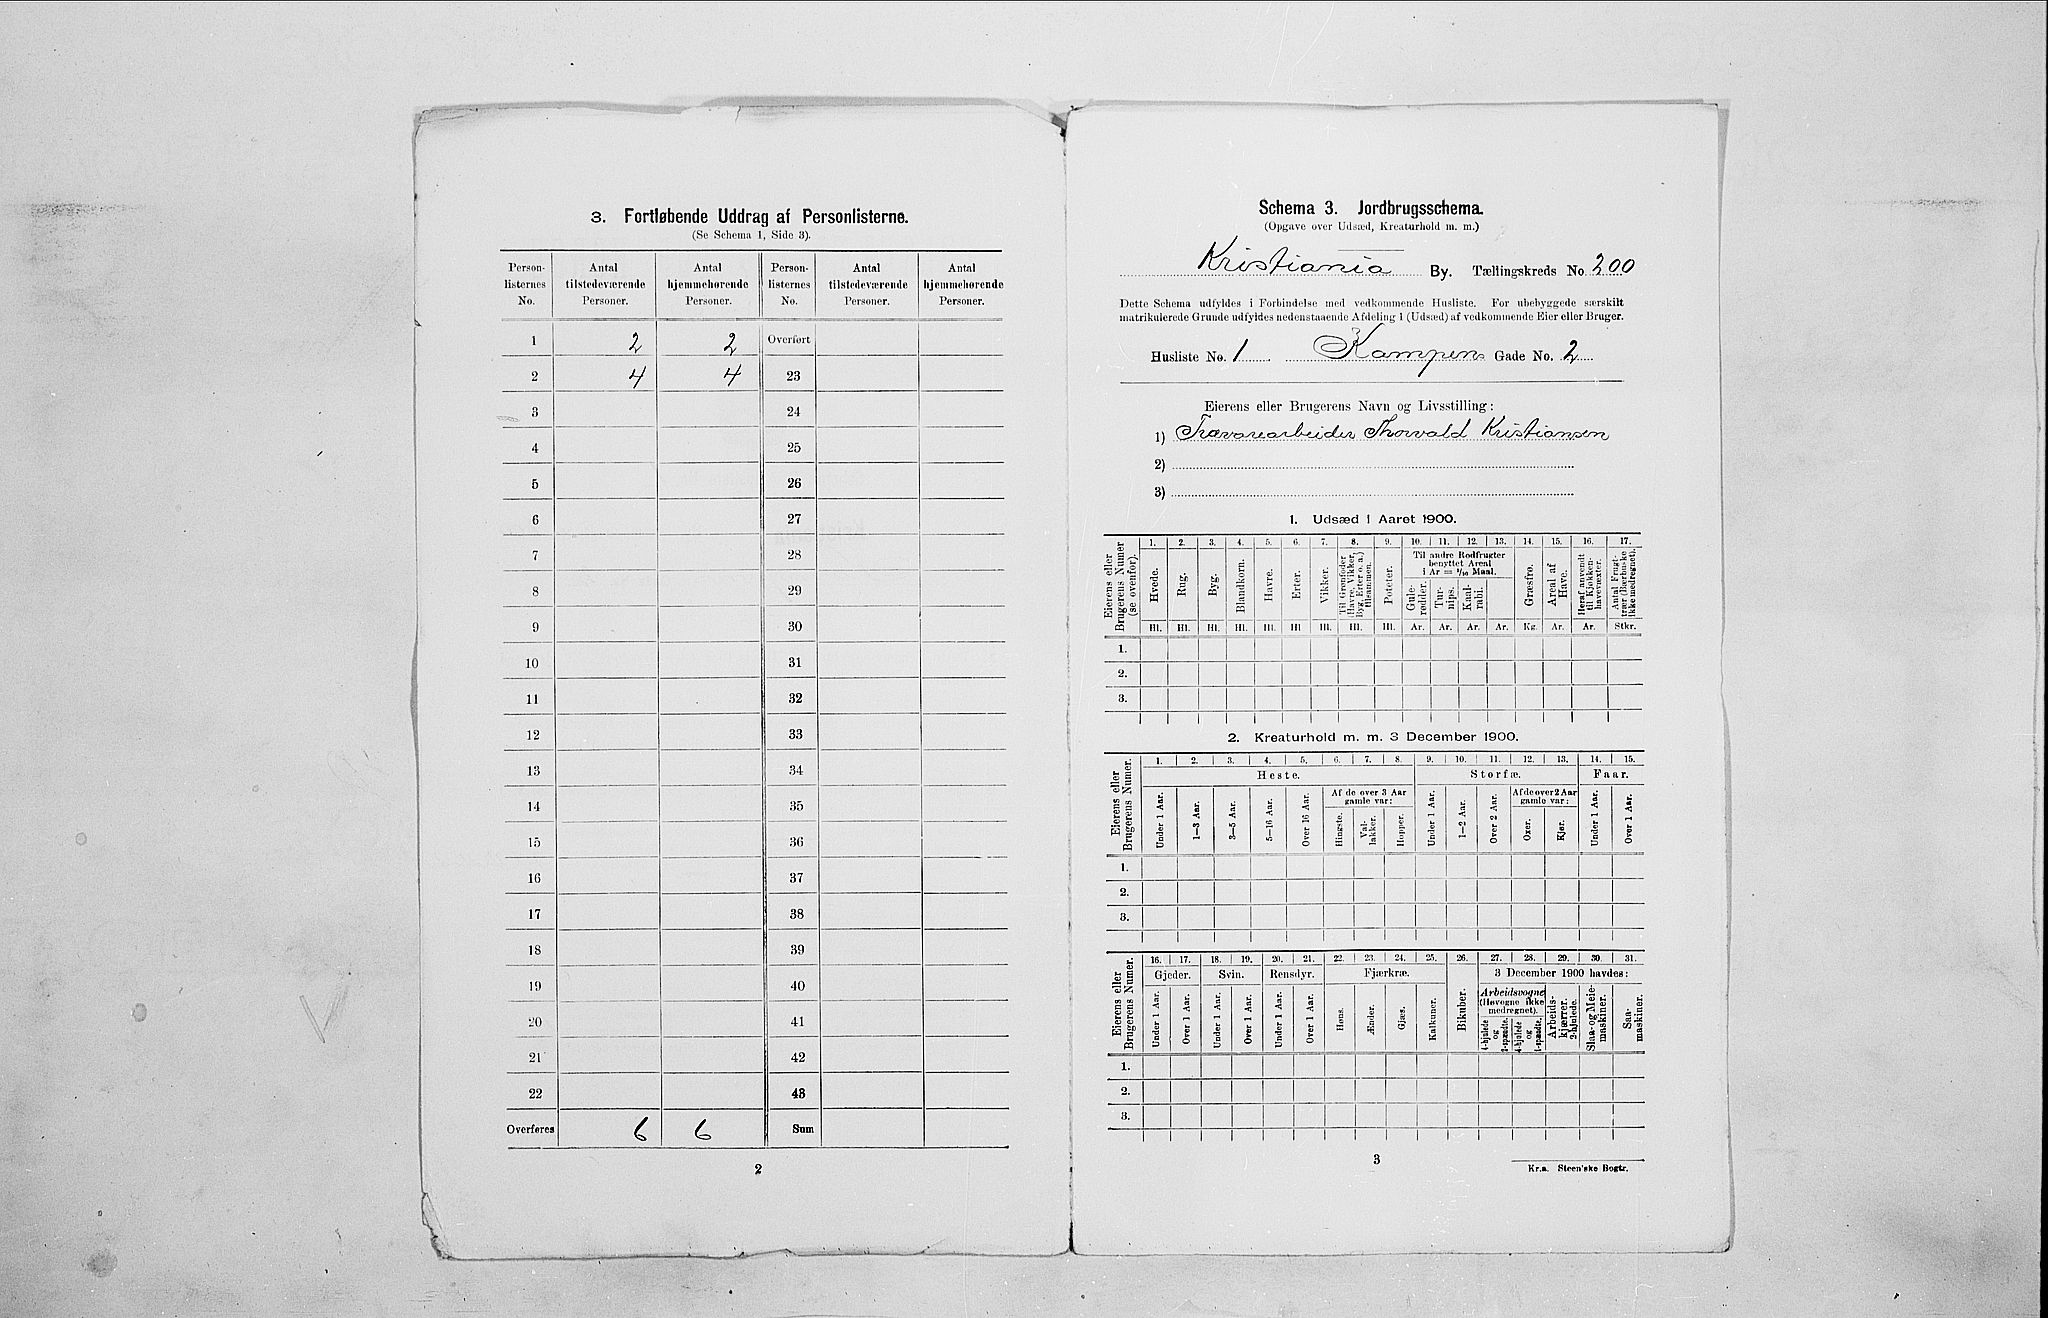 3. Fortløbende Uddrag af Personlisterne.
(Se Schema 1, Side 3).
Person-listernes No. Antal tilstedeværende Personer. Antal hjemmehørende Personer. Person-listernes No. Antal tilstedeværende Personer. Antal hjemmehørende Personer.
1 2 2 Overført
2 4 4 23
3 24
4 25
5 26
6 27
7 28
8 29
9 30
10 31
11 32
12 33
13 34
14 35
15 36
16 37
17 38
18 39
19 40
20 41
21 42
22 43
Overføres 6 6 Sum
2
Schema 3. Jordbrugsschema.
(Opgave over Udsæd, Kreaturhold m. m.)
Kristiania By. Tællingskreds No. 200
Dette Schema udfyldes i Forbindelse med vedkommende Husliste. For ubebyggede særskilt
matrikulerede Grunde udfyldes nedenstaaende Afdeling 1 (Udsæd) af vedkommende Eier eller Bruger.
Husliste No. 1 Kampens Gade No. 2
Eierens eller Brugerens Navn og Livsstilling:
1) Trævarearbeider Thorvald Kristiansen
2)
3)
1. Udsæd i Aaret 1900.
Eierens eller Brugerens Numer (se ovenfor).
1. 2. 3. 4. 5. 6. 7. 8. 9. 10. 11. 12. 13. 14. 15. 16. 17.
Til andre Rodfrugter benyttet Areal i Ar = 1/10 Maal.
Hvede. Rug. Byg. Blandkorn. Havre. Erter. Vikker. Til Grønfoder (Havre, Vikker, Byg, Erter o. a.) tilsammen. Poteter. Gule-rødder. Tur-nips. Kaal-rabi. Græsfrø. Areal af Have. Heraf anvendt til Kjøkken-havevæxter. Antal Frugt-trær (Bærbuske ikke medregnet).
Hl. Hl. Hl. Hl. Hl. Hl. Hl. Hl. Hl. Ar. Ar. Ar. Ar. Kg. Ar. Ar. Stkr.
1.
2.
3.
2. Kreaturhold m. m. 3 December 1900.
Eierens eller Brugerens Numer.
1. 2. 3. 4. 5. 6. 7. 8. 9. 10. 11. 12. 13. 14. 15.
Heste. Storfæ. Faar.
Af de over 3 Aar gamle var: Af de over 2 Aar gamle var:
Under 1 Aar. 1—3 Aar. 3—5 Aar. 5—16 Aar. Over 16 Aar. Hingste. Val-lakker. Hopper. Under 1 Aar. 1—2 Aar. Over 2 Aar. Oxer. Kjør. Under 1 Aar. Over 1 Aar.
1.
2.
3.
Eierens eller Brugerens Numer.
16. 17. 18. 19. 20. 21. 22. 23. 24. 25. 26. 27. 28. 29. 30. 31.
Gjeder. Svin. Rensdyr. Fjærkræ. 3 December 1900 havdes:
Arbeidsvogne (Høvogne ikke medregnet).
Under 1 Aar. Over 1 Aar. Under 1 Aar. Over 1 Aar. Under 1 Aar. Over 1 Aar. Høns. Ænder. Gjæs. Kalkuner. Bikuber. 4-hjulede og 2-spændte. 4-hjulede og 1-spændte. Arbeids-kjærrer. 2-hjulede. Slaa- og Meie-maskiner. Saa-maskiner.
1.
2.
3.
3
Kr.a. Steen'ske Bogtr.